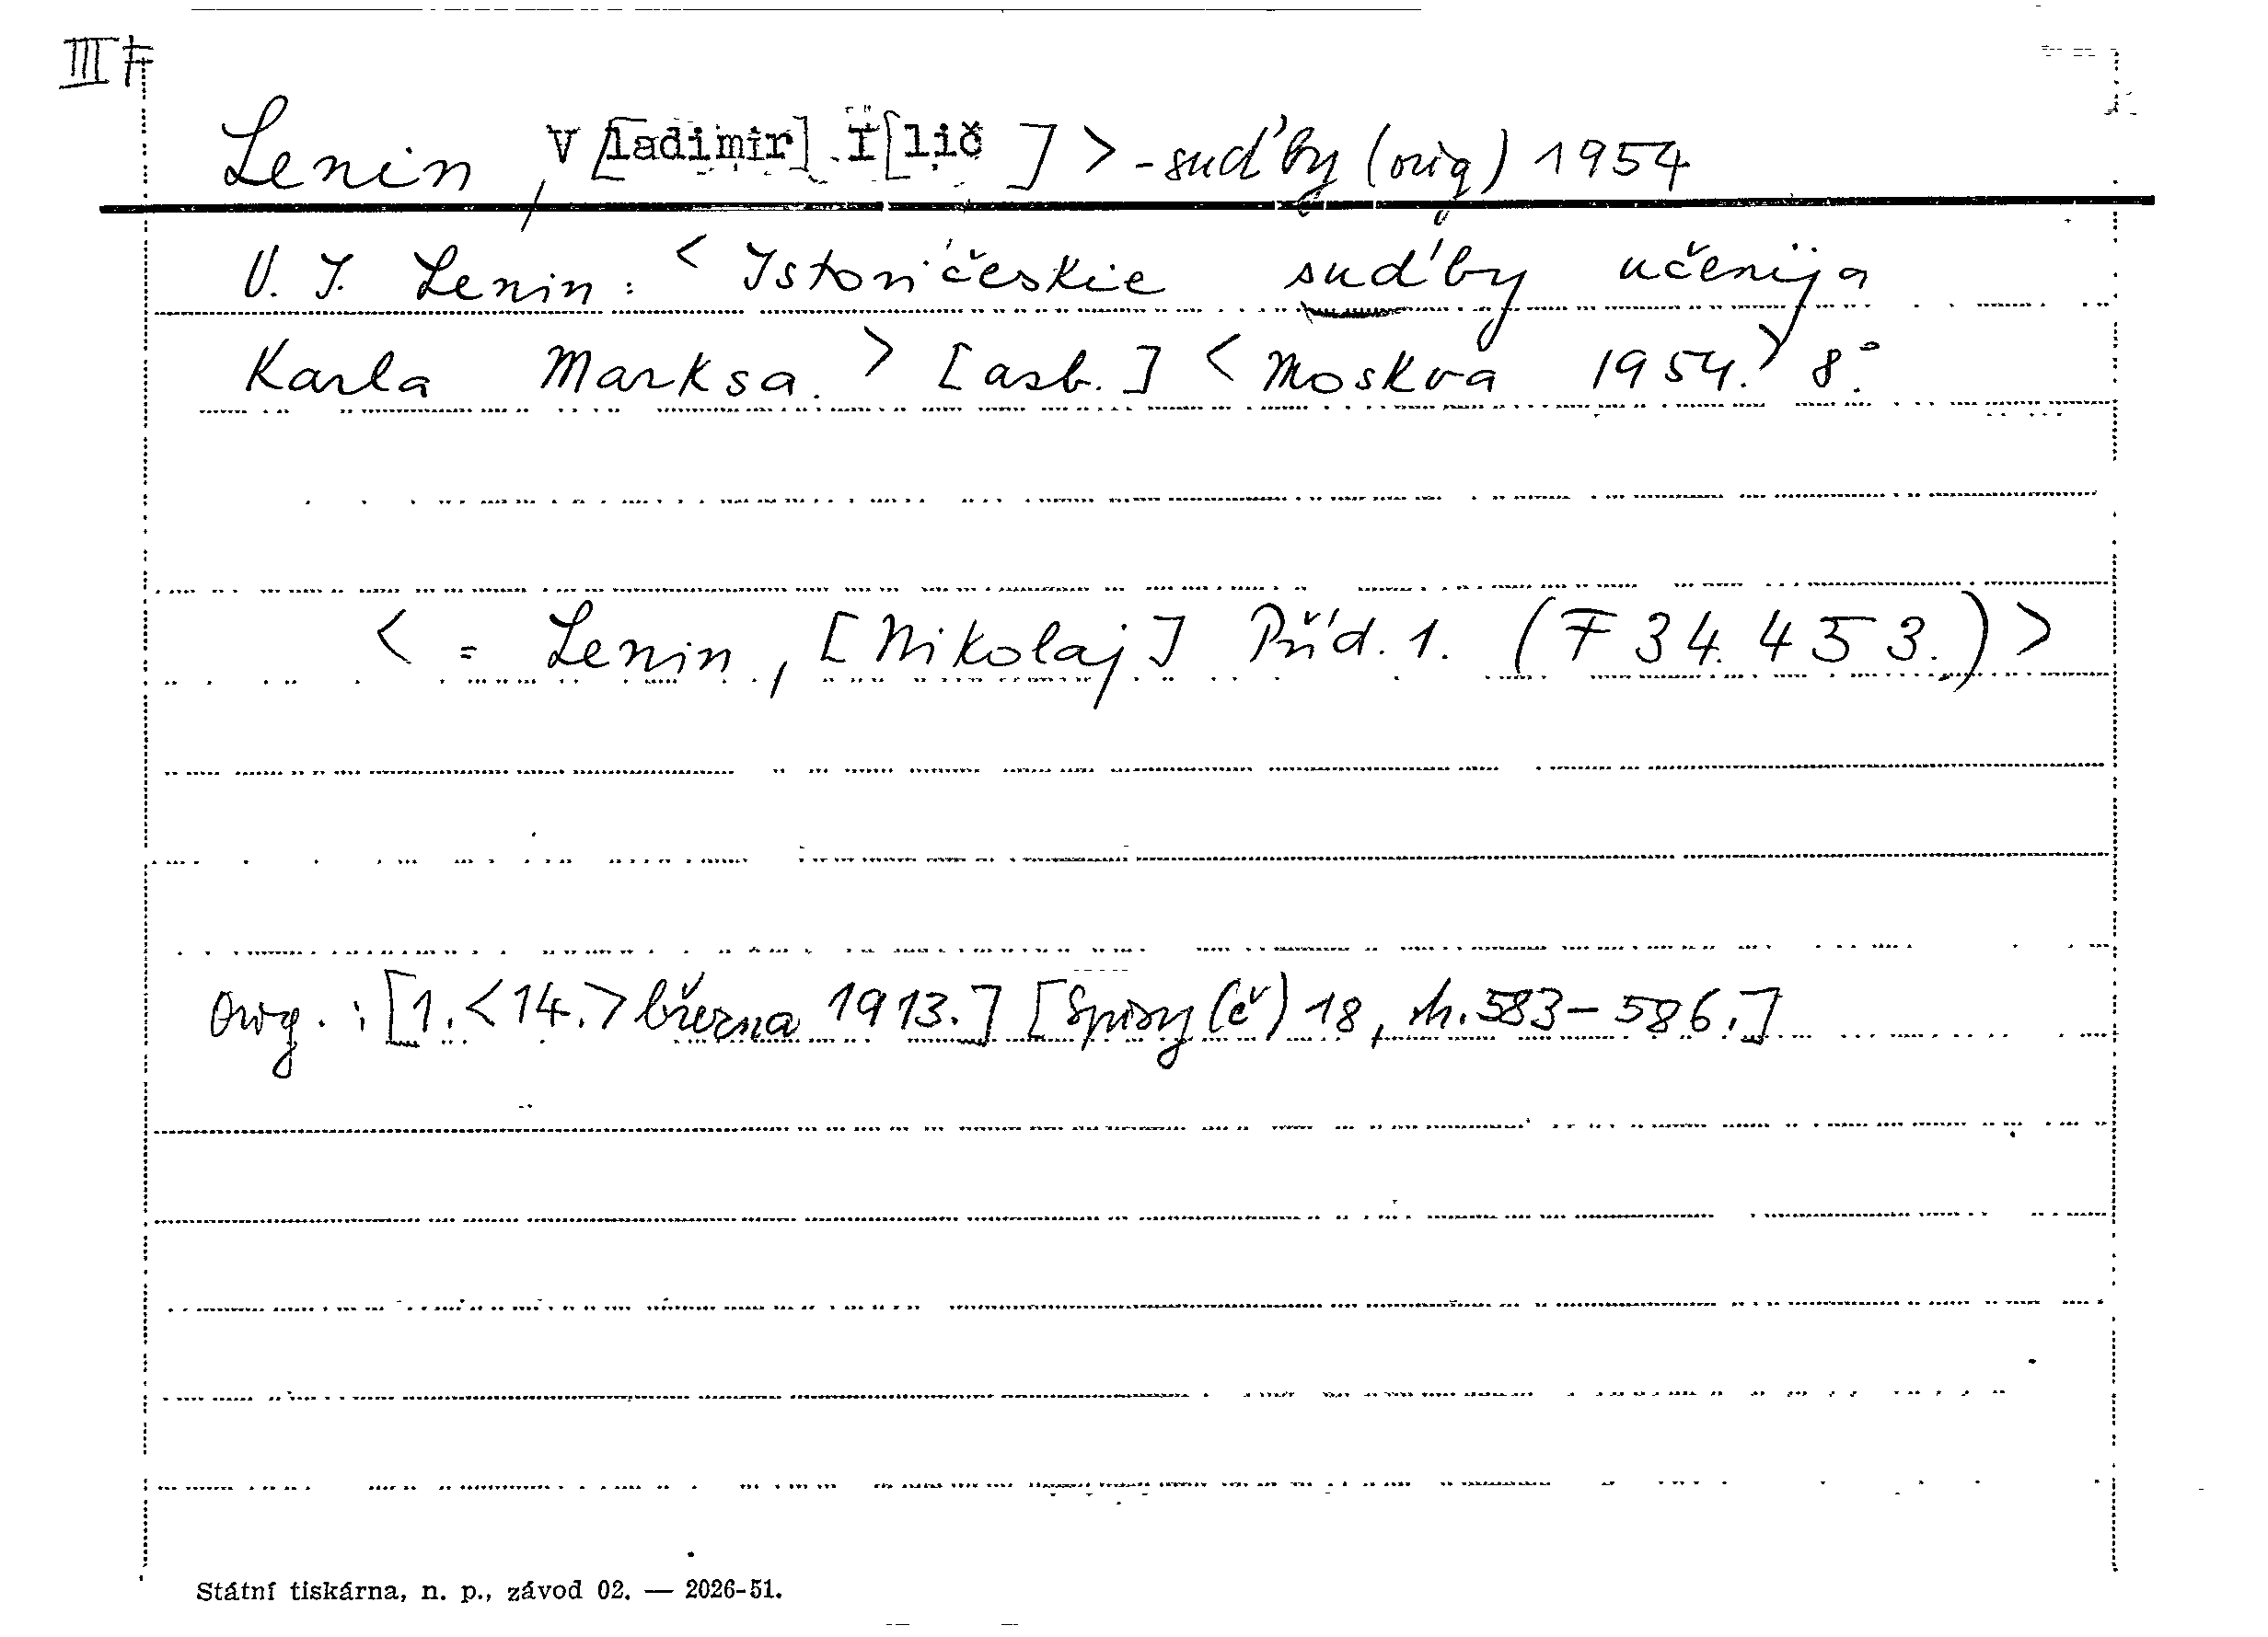 III F
Lenin, V[ladimir] I[lič] > - suďby (orig) 1954
V. I. Lenin: < Istoričeskie suďby učenija
Karla Marksa. > [asb.] < Moskva 1954. > 8°.
< = Lenin, [Nikolaj] Příd. 1. (F 34.453.) >
Orig.: [1. <14.> března 1913.] [Spisy (č) 18, str. 583–586.]
Státní tiskárna, n. p., závod 02. — 2026-51.